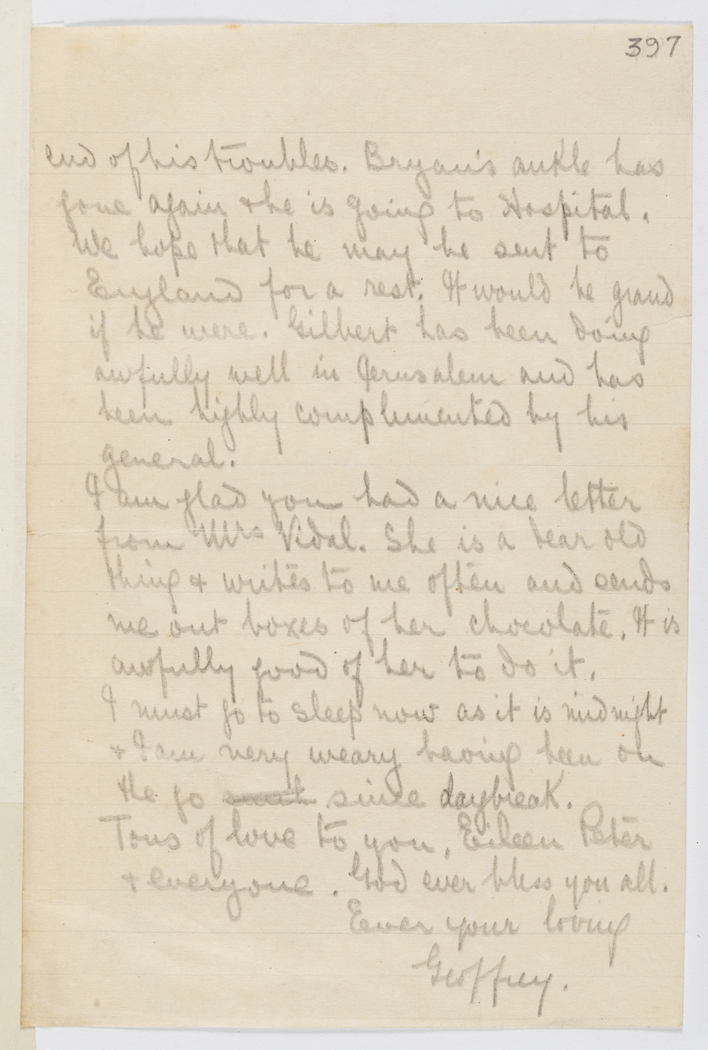 397
end of his troubles. Bryan's ankle has
gone again & he is going to Hospital.
We hope that he may be sent to
England for a rest. It would be grand
if he were. Gilbert has been doing
awfully well in Jerusalem and has
been highly complimented by his
general.
I am glad you had a nice letter
from Mrs Vidal. She is a dear old
thing & writes to me often and sends
me out boxes of her chocolate. It is
awfully good of her to do it.
I must go to sleep now as it is midnight
& I am very weary having been on
the go since daybreak.
Tons of love to you, Eileen Peter
& everyone. God ever bless you all.
Ever your loving
Geoffrey.